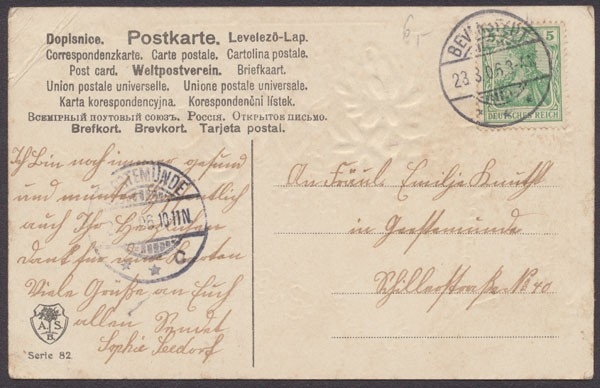 Doplsnice. Postkarte. Levelező-Lap.
Correspondenzkarte. Carte postale. Cartolina postale.
Post card. Weltpostverein. Briefkaart.
Union postale universelle. Unione postale universale.
Karta korespondencyjna. Korespondenční lístek.
Всемірный почтовый союзъ. Россія. Открытое письмо.
Brefkort. Brevkort. Tarjeta postal.
6,-
23.3.06.
5
DEUTSCHES REICH
Ich Bin noch immer gesund
und munter
auch Ihr Herzlichen
dank für
Viele Grüße an Euch
allen Sendet
Sophie Seedorf
TEMÜNDE
06.10-11N
* * C
An Fräul. Emilje Knuth
in Geestemünde
Schillerstraße No 40
A. S.
B.
Serie 82